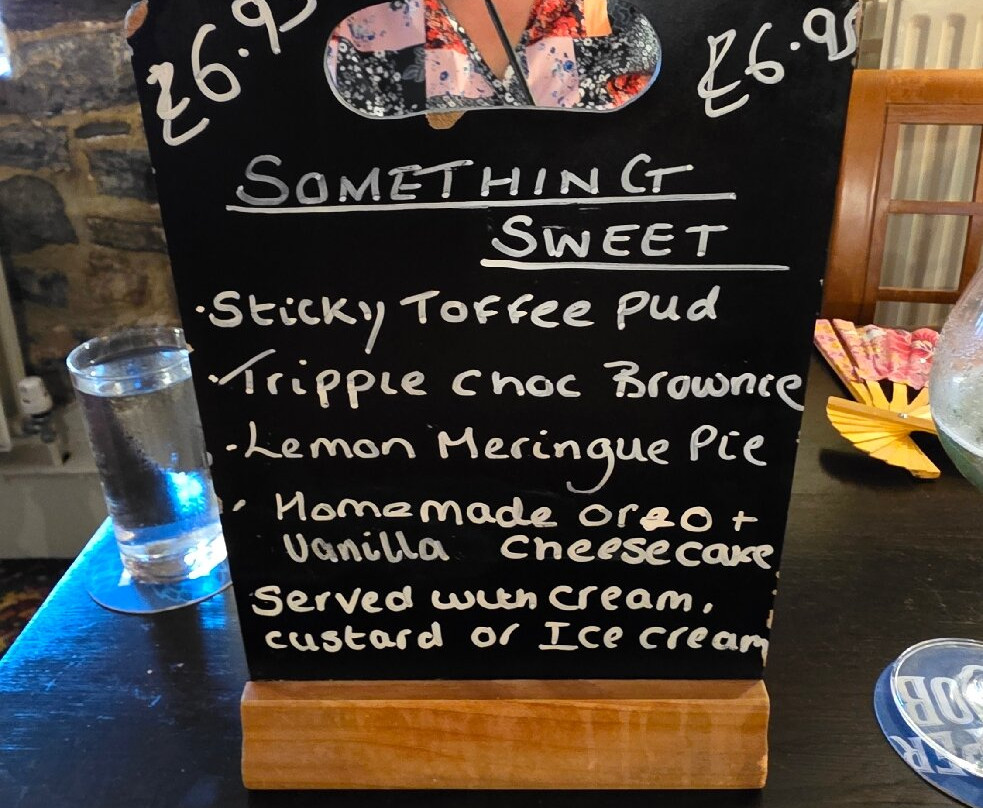 £6.95 £6.95
SOMETHING
SWEET
·Sticky Toffee Pud
·Tripple choc Brownie
·Lemon Meringue Pie
· Homemade oreo +
Vanilla cheesecake
Served with cream,
custard or Ice cream